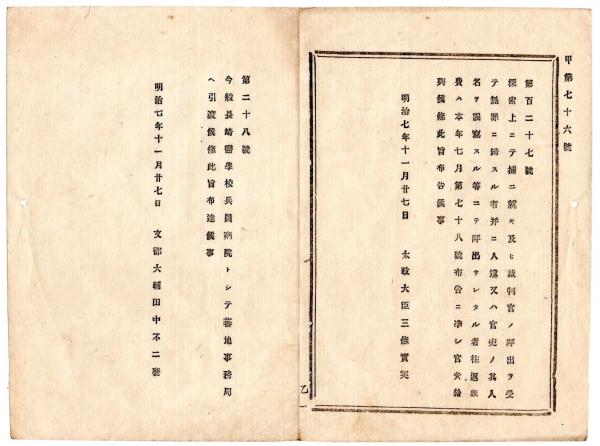 甲第七十六號
第百二十七號
探索上ニテ捕ニ就キ及ヒ裁判官ノ呼出ヲ受
テ無罪ニ歸スル者并ニ人違又ハ官吏ノ其人
名ヲ誤寫スル等ニテ呼出サレタル者往返旅
費ハ本年七月第七十八號布告ニ準シ官ヨリ給
與候條此旨布告候事
明治七年十一月廿七日　太政大臣三條實美
乙
第二十八號
今般長崎醫學校兵員病院トシテ蕃地事務局
ヘ引渡候條此旨布達候事
明治七年十一月廿七日　文部大輔田中不二麿